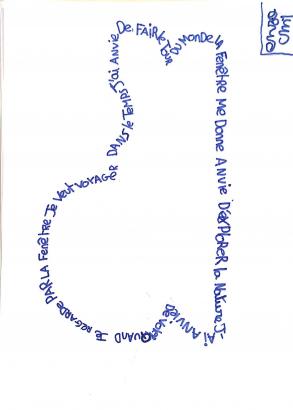 QUAND JE REGARDE PAR LA FENÊTRE Je Veut VOYAGER DANS le TEMPS J'Ai ANVIE De FAIR le TOUR DU MONDE LA FENÊTRE Me Donne ANVIE D'EXPLORER la NATURE J-Ai ANVIE De Voler